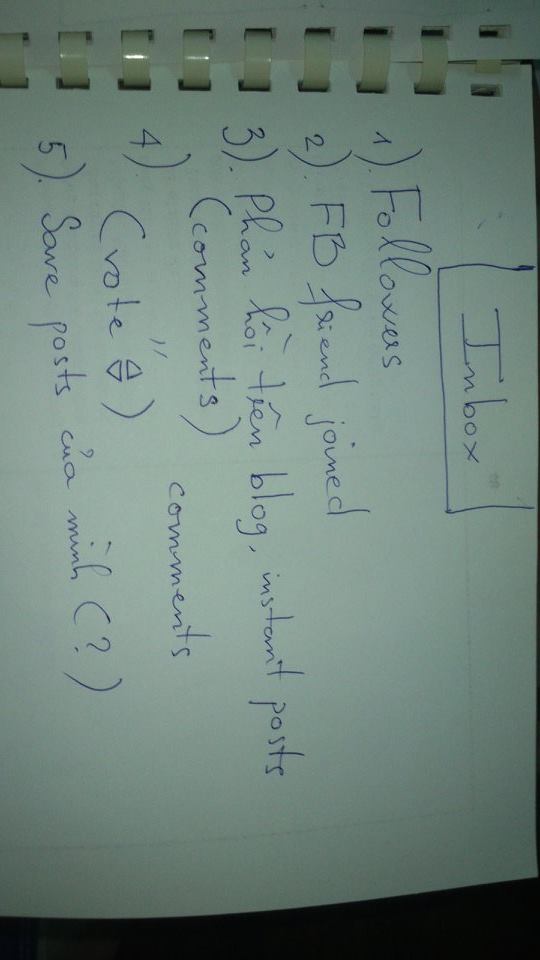 Inbox
1). Followers
2). FB friend joined
3). Phản hồi trên blog, instant posts
(comments)
4) " comments
(vote △▽)
5). Save posts của mình (?)